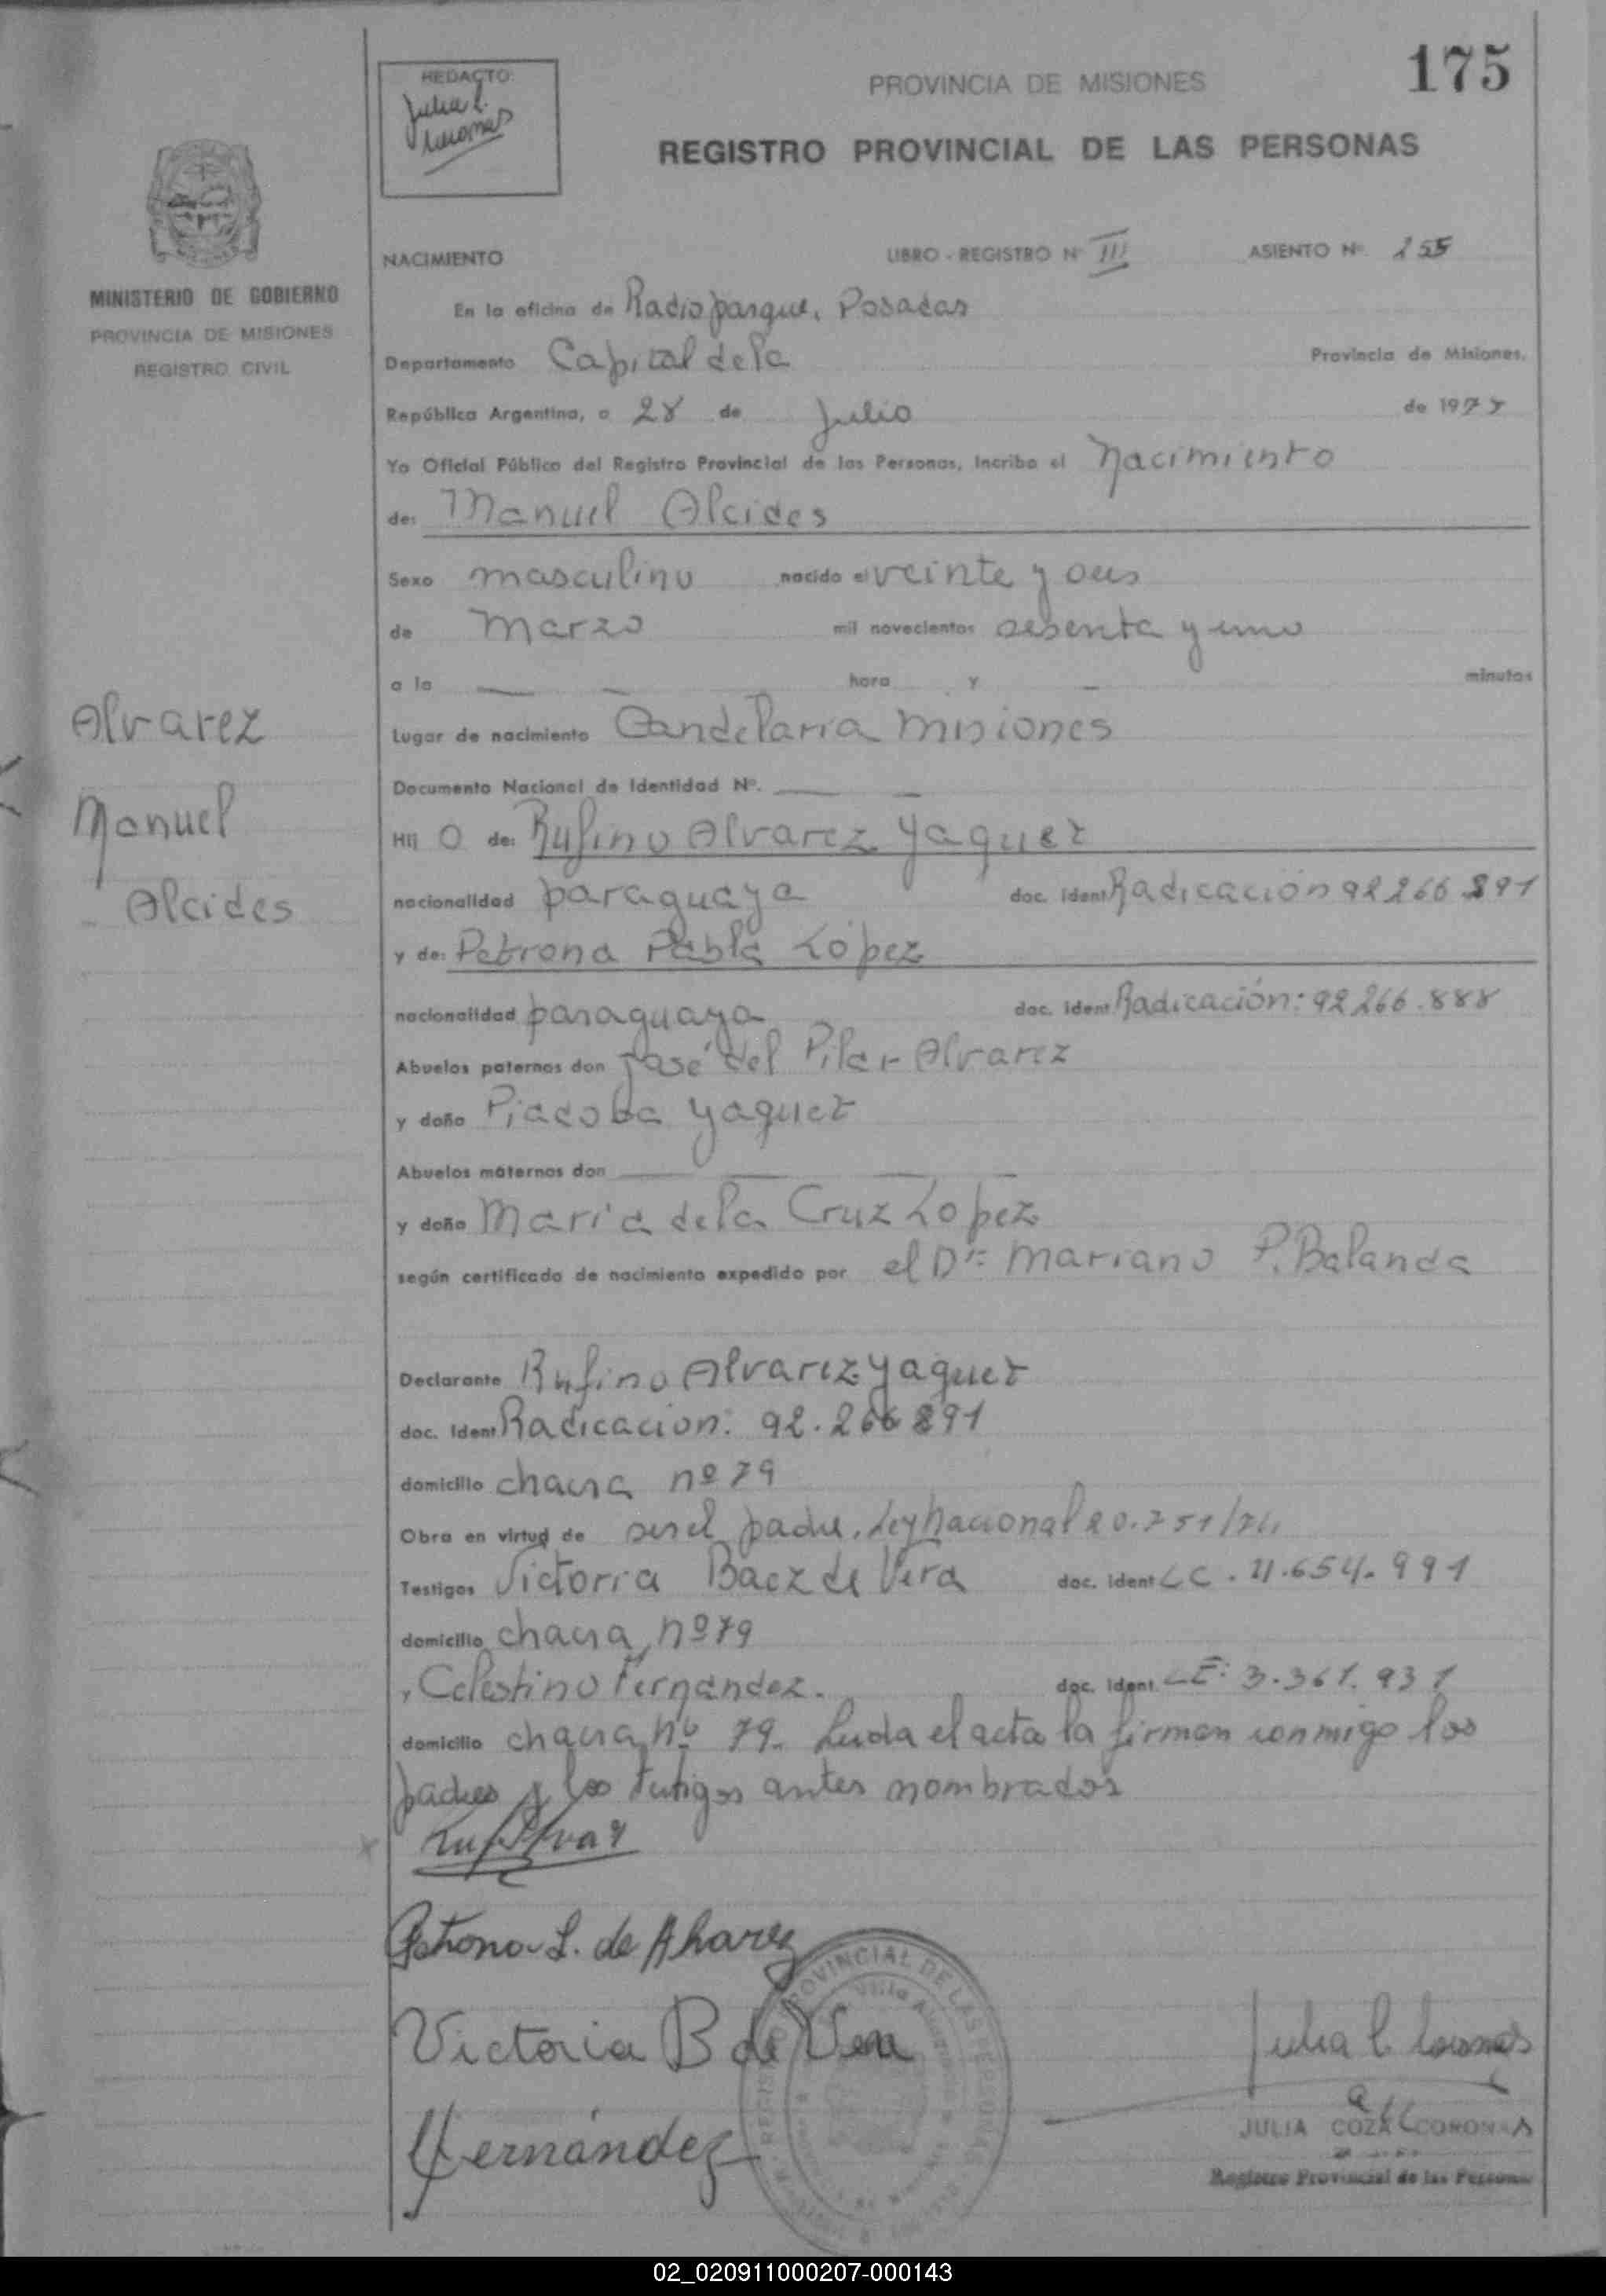 175
REDACTO:
Julia C.
Coronas
PROVINCIA DE MISIONES
REGISTRO PROVINCIAL DE LAS PERSONAS
MINISTERIO DE GOBIERNO
PROVINCIA DE MISIONES
REGISTRO CIVIL
NACIMIENTO LIBRO - REGISTRO Nº III ASIENTO Nº 255
En la oficina de Radioparque, Posadas
Departamento Capital de la Provincia de Misiones.
República Argentina, a 28 de Julio de 1977
Yo Oficial Público del Registro Provincial de las Personas, incribo el nacimiento
de: Manuel Alcides
Sexo masculino nacido el veinte y
de Marzo mil novecientos sesenta y uno
a la — — hora y — minutos
Alvarez
Manuel
Alcides
Lugar de nacimiento Candelaria Misiones
Documento Nacional de Identidad Nº. — —
Hij o de: Rufino Alvarez Yaquet
nacionalidad paraguaya doc. ident Radicación 92266 891
y de: Petrona Pabla López
nacionalidad paraguaya doc. ident Radicación: 92266.888
Abuelos paternos don José del Pilar Alvarez
y doña Piacoba Yaquet
Abuelos maternos don — — — —
y doña Maria de la Cruz Lopez
según certificado de nacimiento expedido por el Dr. Mariano P. Balanda
Declarante Rufino Alvarez Yaquet
doc. ident Radicacion: 92.266 891
domicilio chacra nº 79
Obra en virtud de ser el padre, Ley Nacional 20.751/74
Testigos Victoria Baez de Vera doc. ident LC. 4.654.991
domicilio chacra nº 79
y Celestino Fernandez. doc. ident. LE: 3.361.931
domicilio chacra nº 79. Leida el acta la firman conmigo los
padres y los testigos antes nombrados
Petrona L. de Alvarez
Victoria B de Vera
Fernández
REGISTRO PROVINCIAL DE LAS PERSONAS
Julia C Coronas
JULIA COZZA CORONAS
Registro Provincial de las Personas
02_020911000207-000143